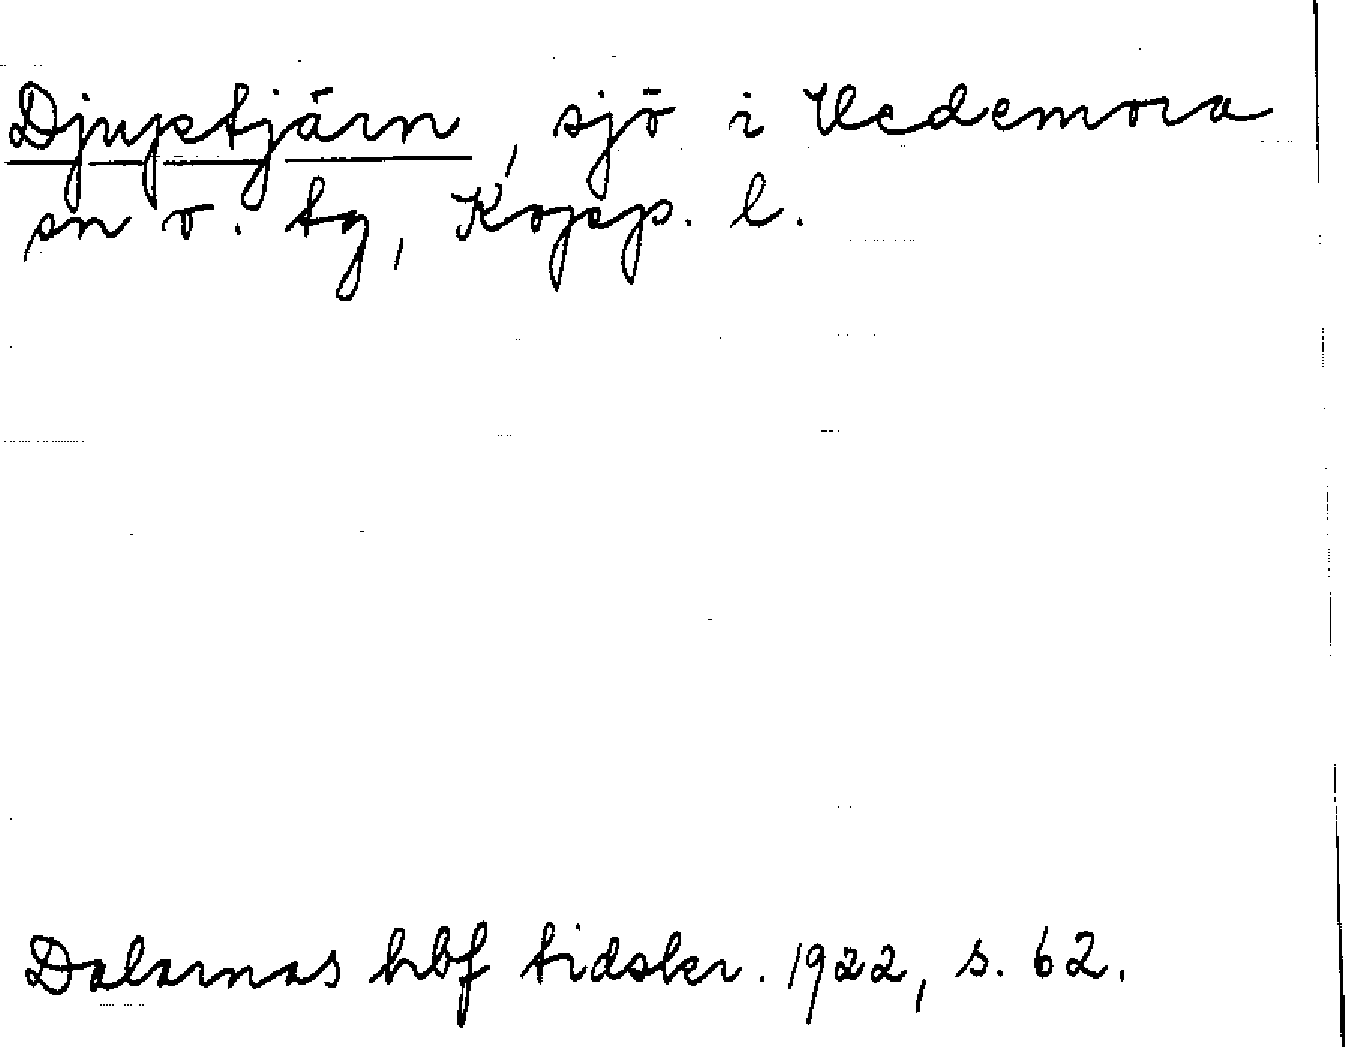 Djuptjärn, sjö i Hedemora
sn o. tg, Kopp. l.
Dalarnas hbf tidskr. 1922, s. 62.